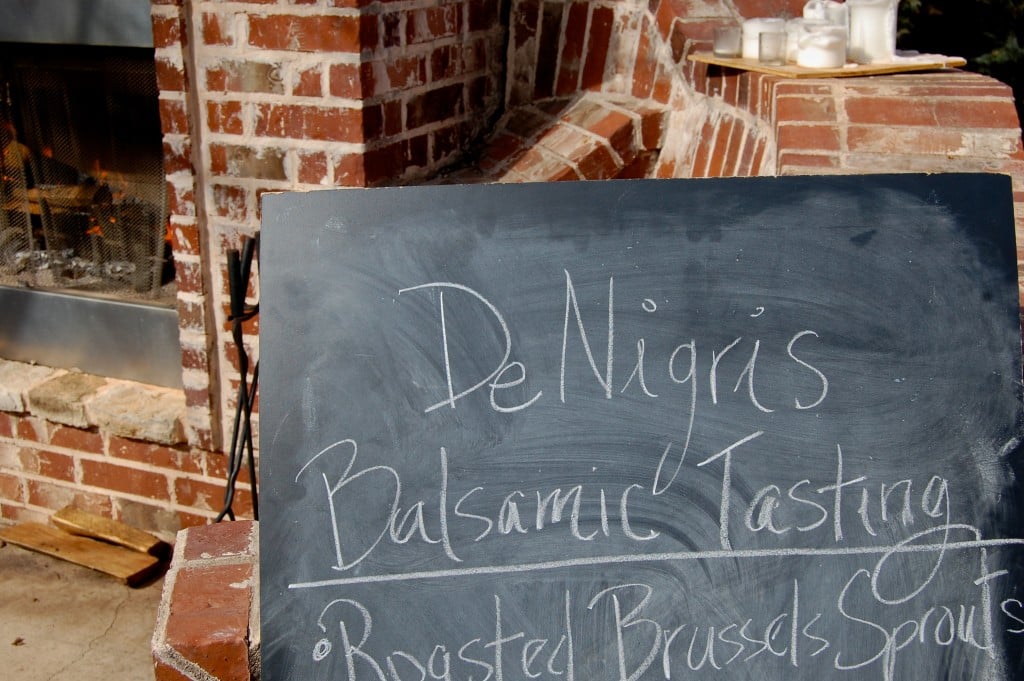 De Nigris
Balsamic Tasting
• Roasted Brussels Sprouts